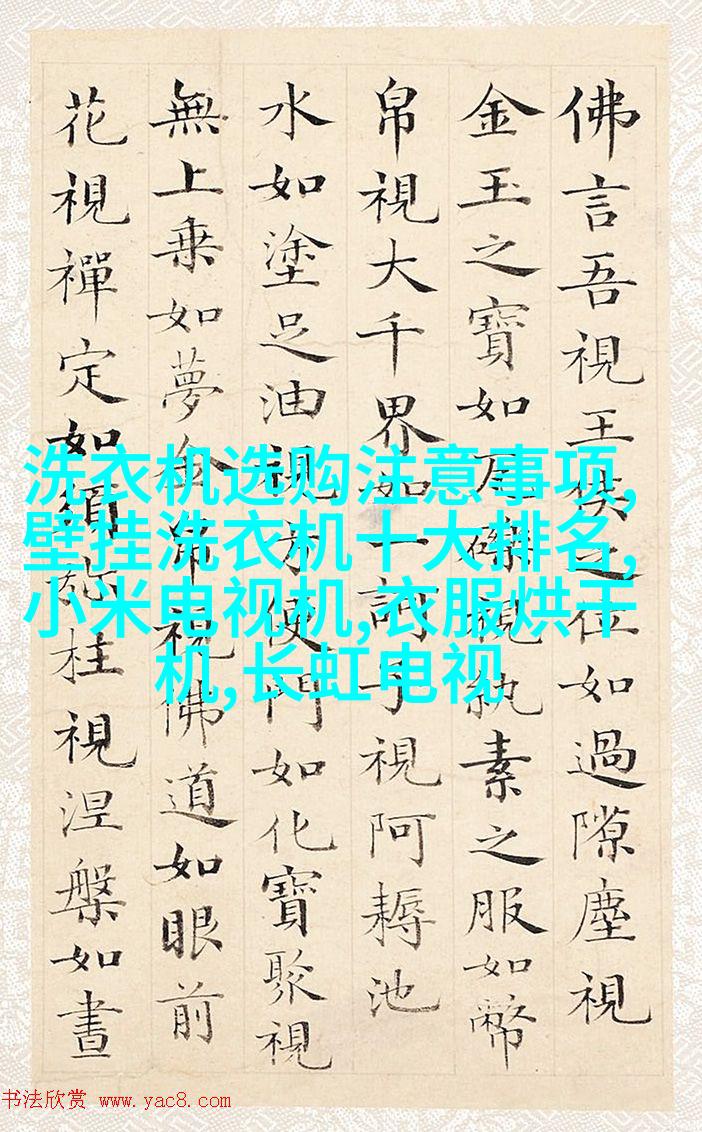 佛言吾視王侯之位如過隙塵視
金玉之寶如瓦礫視紈素之服如幣
帛視大千界如一訶子視阿耨池
水如塗足油視方便門如化寶聚視
無上乗如夢金帛視佛道如眼前
花視禪定如須弥柱視涅槃如晝
洗衣机选购注意事项,
壁挂洗衣机十大排名,
小米电视机,衣服烘干
机,长虹电视
书法欣赏 www.yac8.com